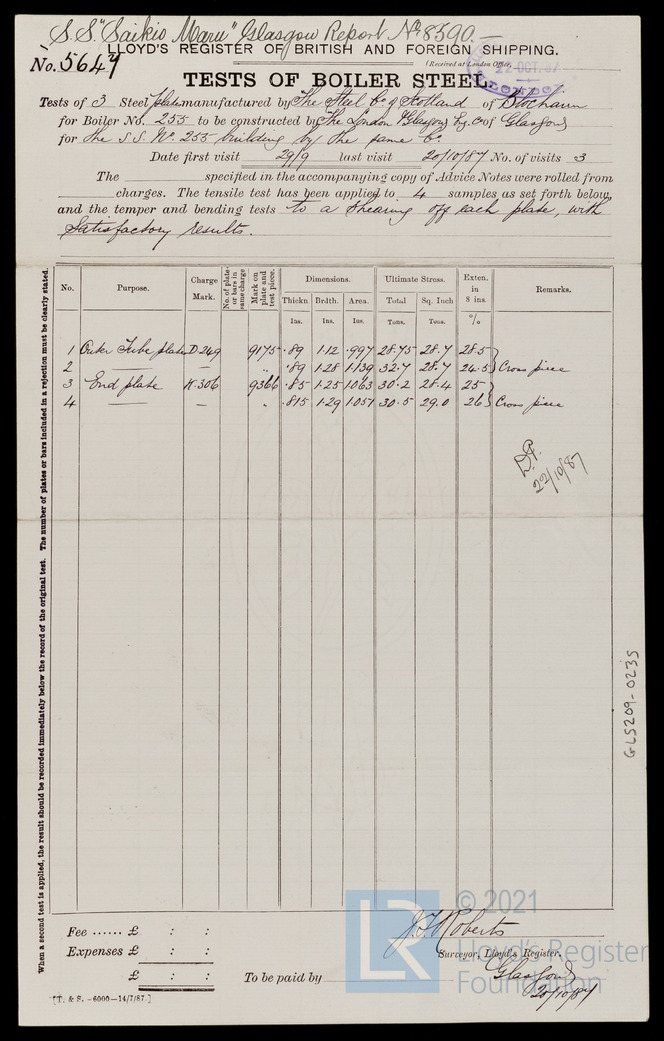 S.S. "Saikio Maru" Glasgow Report No. 8590.—
LLOYD'S REGISTER OF BRITISH AND FOREIGN SHIPPING.
No. 5647
(Received at London Office,
22 OCT. 87
TESTS OF BOILER STEEL.
Tests of 3 Steel plates manufactured by The Steel Co. of Scotland of Blochairn
for Boiler No. 255 to be constructed by The London & Glasgow Eg. Co. of Glasgow
for the S.S. No. 255 building by the same Co.
Date first visit 29/9 last visit 20/10/87 No. of visits 3
The specified in the accompanying copy of Advice Notes were rolled from
charges. The tensile test has been applied to 4 samples as set forth below,
and the temper and bending tests to a shearing off each plate, with
Satisfactory results.
When a second test is applied, the result should be recorded immediately below the record of the original test. The number of plates or bars included in a rejection must be clearly stated.
No. Purpose. Charge Mark. No. of plates or bars in same charge Mark on plate and test piece. Dimensions. Ultimate Stress. Exten. in 8 ins. Remarks.
Thickn Brdth. Area. Total Sq. Inch
Ins. Ins. Ins. Tons. Tons. %
1 Outer Tube plates D 249 9175 .89 1.12 .997 28.75 28.7 28.5
2 — — " .89 1.28 1.139 32.7 28.7 24.5 Cross piece
3 End plate K 306 9366 .85 1.25 1.063 30.2 28.4 25
4 — — " .815 1.29 1.051 30.5 29.0 26 Cross piece
22/10/87
GLS209-0235
Fee ...... £ : :
Expenses £ : :
£ : :
To be paid by
J. F. Roberts
Surveyor, Lloyd's Register,
Glasgow
20/10/87
[T. & S. —6000—14/7/87.]
LR
© 2021
Lloyd's Register
Foundation